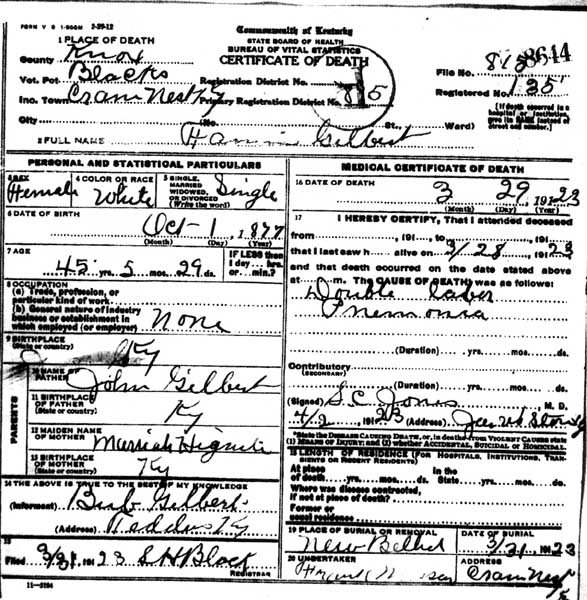 FORM V S 1-500M 7-29-12
Commonwealth of Kentucky
STATE BOARD OF HEALTH
BUREAU OF VITAL STATISTICS
CERTIFICATE OF DEATH
1 PLACE OF DEATH
County Knox
Vot. Pot. Blacks
Inc. Town
City
Registration District No.
Primary Registration District No. 815
File No. 8644
Registered No. 135
(If death occurred in a hospital or institution, give its NAME instead of street and number.)
St., Ward)
2 FULL NAME Gilbert
PERSONAL AND STATISTICAL PARTICULARS
3 SEX Female
4 COLOR OR RACE White
5 SINGLE, MARRIED WIDOWED, OR DIVORCED (Write the word) Single
6 DATE OF BIRTH Oct 1 1877
(Month) (Day) (Year)
7 AGE 45 yrs. 5 mos. 29 ds.
IF LESS than 1 day... hrs. or... min.?
8 OCCUPATION
(a) Trade, profession, or particular kind of work
(b) General nature of industry business or establishment in which employed (or employer) None
9 BIRTHPLACE (State or country) Ky
PARENTS
10 NAME OF FATHER John Gilbert
11 BIRTHPLACE OF FATHER (State or country) Ky
12 MAIDEN NAME OF MOTHER
13 BIRTHPLACE OF MOTHER (State or country) Ky
14 THE ABOVE IS TRUE TO THE BEST OF MY KNOWLEDGE
(Informant) Gilbert
(Address) Ky
15
Filed 3/31 1923 S H Black
REGISTRAR
11-3184
MEDICAL CERTIFICATE OF DEATH
16 DATE OF DEATH 3 29 1923
(Month) (Day) (Year)
17 I HEREBY CERTIFY, That I attended deceased
from 191 , to 191
that I last saw h alive on 3/28, 1923
and that death occurred on the date stated above
at m. The CAUSE OF DEATH was as follows:
Double Lober
Pnemonia
(Duration) yrs. mos. ds.
Contributory
(SECONDARY)
(Duration) yrs. mos. ds.
(Signed) S.C. Jones M. D.
4/2 1923 (Address)
*State the DISEASE CAUSING DEATH, or, in deaths from VIOLENT CAUSES state (1) MEANS OF INJURY; and (2) whether ACCIDENTAL, SUICIDAL or HOMICIDAL.
18 LENGTH OF RESIDENCE (FOR HOSPITALS, INSTITUTIONS, TRANSIENTS OR RECENT RESIDENTS)
At place of death yrs. mos. ds. In the State yrs. mos. ds.
Where was disease contracted, if not at place of death?
Former or usual residence
19 PLACE OF BURIAL OR REMOVAL New
DATE OF BURIAL 3/31 1923
20 UNDERTAKER
ADDRESS